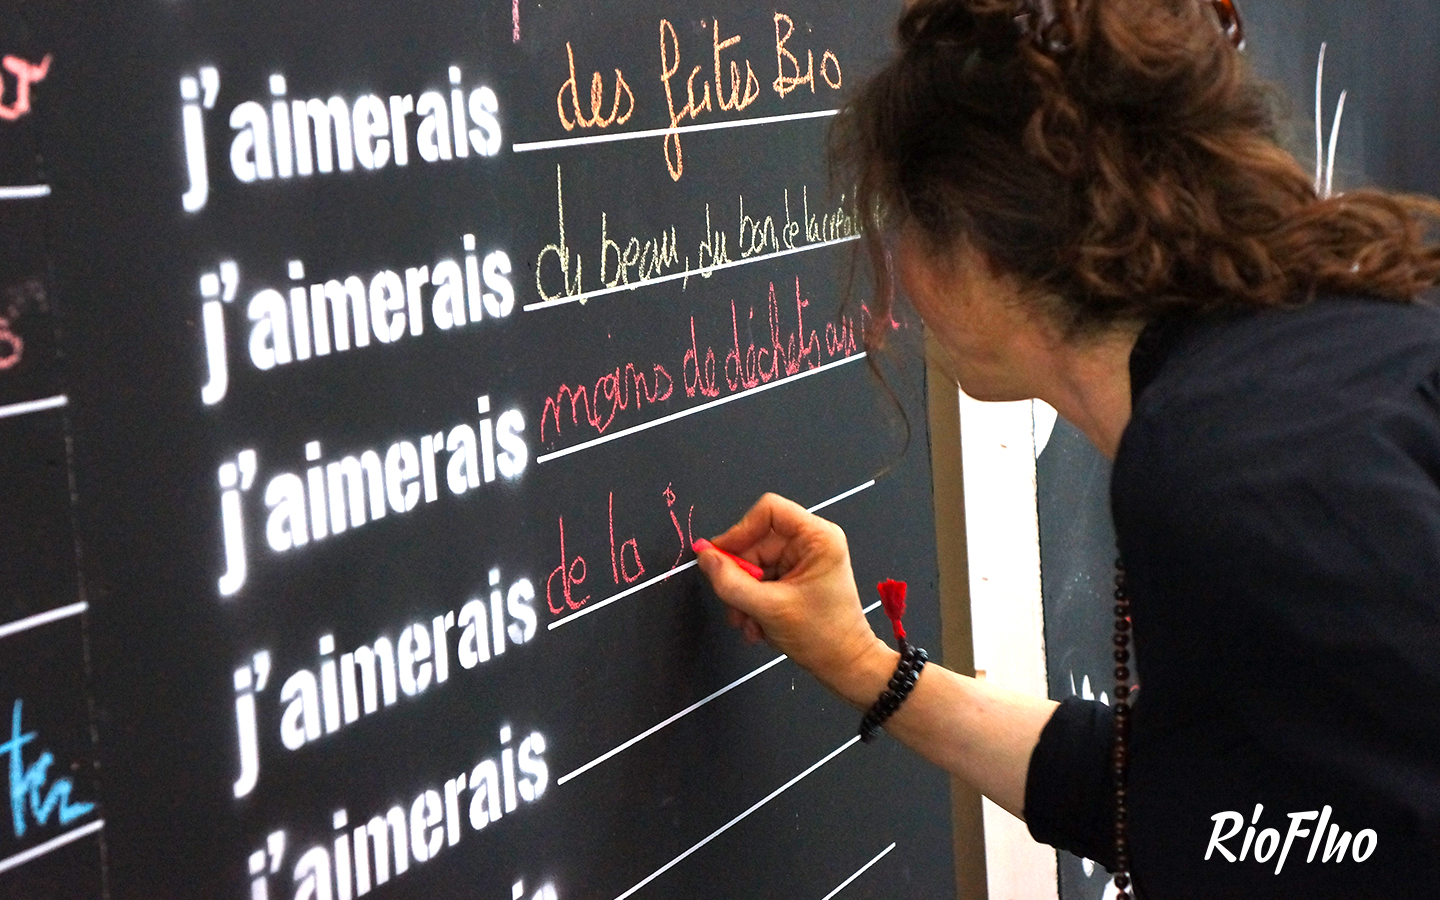 j'aimerais des faites Bio
j'aimerais du beau, du bon, de la
j'aimerais moins de déchets au
j'aimerais de la
j'aimerais
j'aimerais
RioFluo